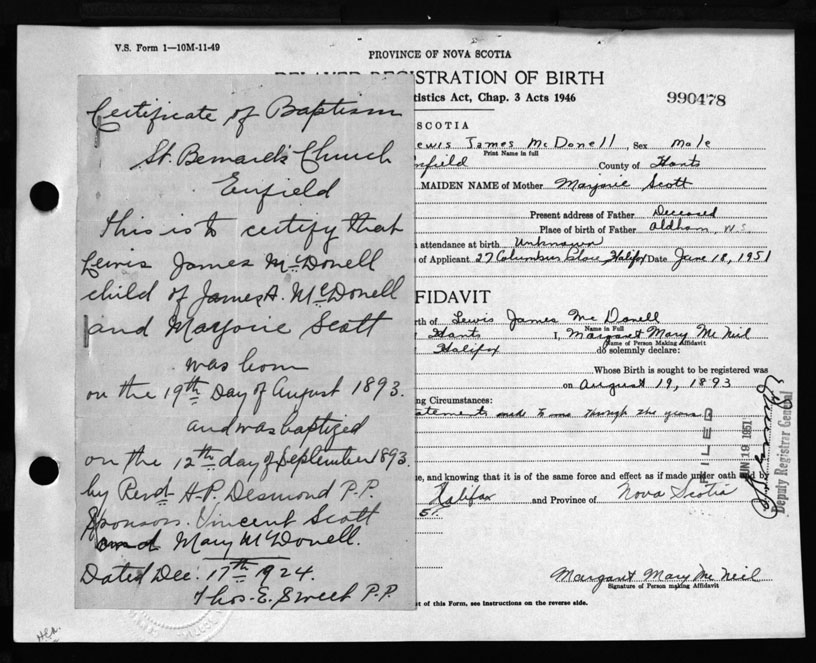 V.S. Form 1—10M-11-49
PROVINCE OF NOVA SCOTIA
REGISTRATION OF BIRTH
tistics Act, Chap. 3 Acts 1946
990478
SCOTIA
ewis James McDonell, Sex Male
Print Name in full
nfield County of Hants
MAIDEN NAME of Mother Marjorie Scott
Present address of Father Deceased
Place of birth of Father Aldham, N.S.
attendance at birth Unknown
of Applicant 27 Columbus Place, Halifax Date June 18, 1951
FIDAVIT
rth of Lewis James McDonell
Name in Full
Hants I, Margaret Mary McNeil
Name of Person Making Affidavit
Halifax do solemnly declare:
Whose Birth is sought to be registered was
on August 19, 1893
ng Circumstances:
atements made to me through the years
e, and knowing that it is of the same force and effect as if made under oath and by
Halifax and Province of Nova Scotia
51
Margaret Mary McNeil
Signature of Person making Affidavit
t of this Form, see instructions on the reverse side.
FILED
JUN 19 1951
Deputy Registrar General
Certificate of Baptism
St. Bernard's Church
Enfield
This is to certify that
Lewis James McDonell
child of James A. McDonell
and Marjorie Scott
was born
on the 19th Day of August 1893.
and was baptized
on the 12th day of September 1893.
by Revd A.P. Desmond P.P.
Sponsors. Vincent Scott
and Mary McDonell.
Dated Dec. 17th 1924.
Thos. E. Sweet P.P.